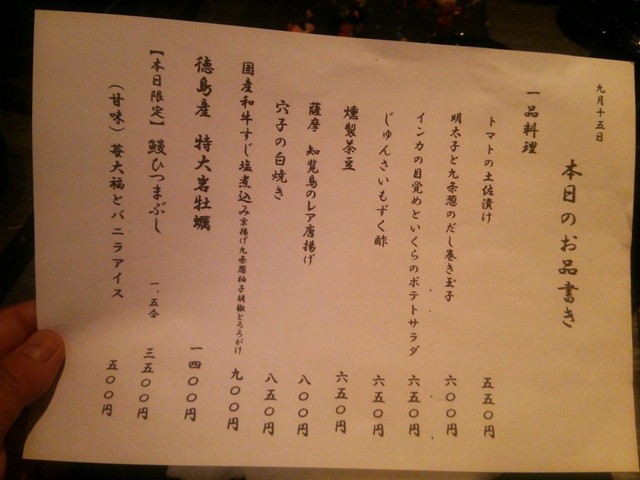 九月十五日
本日のお品書き
一品料理
トマトの土佐漬け 五五〇円
明太子と九条葱のだし巻き玉子 六〇〇円
インカの目覚めといくらのポテトサラダ 六五〇円
じゅんさいもずく酢 六五〇円
燻製茶豆 六五〇円
薩摩 知覧鳥のレア唐揚げ 八〇〇円
穴子の白焼き 八五〇円
国産和牛すじ塩煮込み京揚げ九条葱柚子胡椒とろろがけ 九〇〇円
徳島産 特大岩牡蠣 一四〇〇円
【本日限定】鰻ひつまぶし 一.五合 三五〇〇円
(甘味)苺大福とバニラアイス 五〇〇円